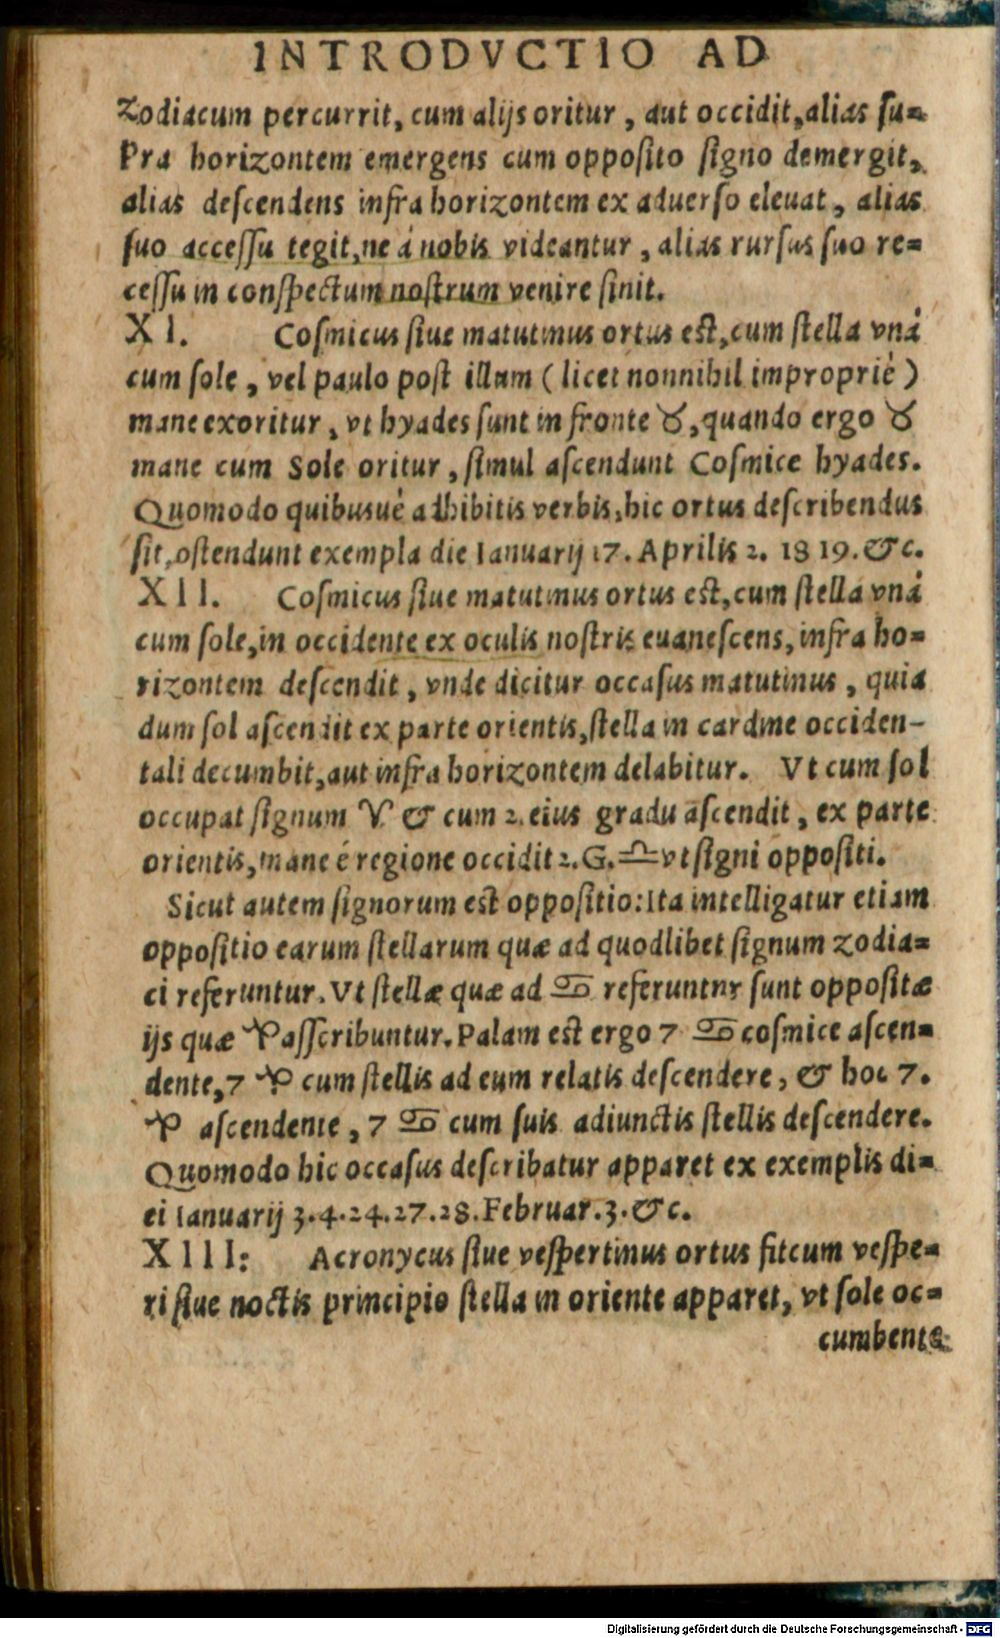 INTRODVCTIO AD
Zodiacum percurrit, cum alijs oritur, aut occidit, alias ſu-
Pra horizontem emergens cum oppoſito ſigno demergit,
alias deſcendens infra horizontem ex aduerſo eleuat, alias
ſuo acceſſu tegit, ne á nobis videantur, alias rurſus ſuo re-
ceſſu in conſpectum noſtrum venire ſinit.
XI. Coſmicus ſiue matutinus ortus eſt, cum ſtella vná
cum ſole, vel paulo poſt illum (licet nonnihil impropriè)
mane exoritur, vt hyades ſunt in fronte ♉, quando ergo ♉
mane cum Sole oritur, ſimul aſcendunt Coſmice hyades.
Quomodo quibusuè adhibitis verbis, hic ortus deſcribendus
ſit, oſtendunt exempla die Ianuarij 17. Aprilis 2. 18 19. &c.
XII. Coſmicus ſiue matutinus ortus eſt, cum ſtella vná
cum ſole, in occidente ex oculis noſtris euaneſcens, infra ho-
rizontem deſcendit, vnde dicitur occaſus matutinus, quia
dum ſol aſcendit ex parte orientis, ſtella in cardine occiden-
tali decumbit, aut infra horizontem delabitur. Vt cum ſol
occupat ſignum ♈ & cum 2. eius gradu aſcendit, ex parte
orientis, mane é regione occidit 2. G. ♎ vt ſigni oppoſiti.
Sicut autem ſignorum eſt oppoſitio: Ita intelligatur etiam
oppoſitio earum ſtellarum quæ ad quodlibet ſignum zodia-
ci referuntur. Vt ſtellæ quæ ad ♋ referuntnr ſunt oppoſitæ
ijs quæ ♑ aſſcribuntur. Palam eſt ergo 7 ♋ coſmice aſcen-
dente, 7 ♑ cum ſtellis ad eum relatis deſcendere, & hoc 7.
♑ aſcendente, 7 ♋ cum ſuis adiunctis ſtellis deſcendere.
Quomodo hic occaſus deſcribatur apparet ex exemplis di-
ei Ianuarij 3. 4. 24. 27. 28. Februar. 3. &c.
XIII: Acronycus ſiue veſpertinus ortus fit cum veſpe-
ri ſiue noctis principio ſtella in oriente apparet, vt ſole oc-
cumbente
Digitalisierung gefördert durch die Deutsche Forschungsgemeinschaft - DFG